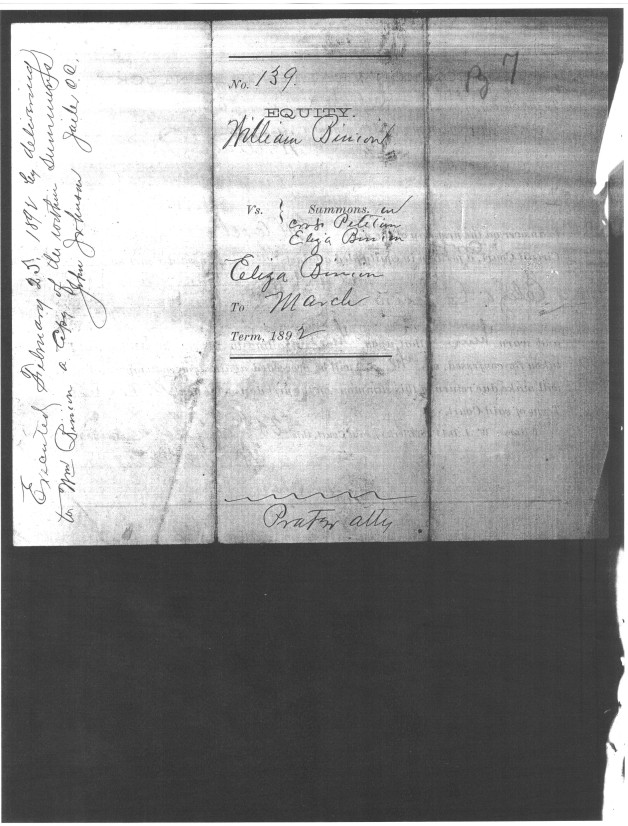 Executed February 25, 1892 by delivering
to Wm Binion a Copy of the within Summons
John Johnson Jailer O.C.
No. 139.
EQUITY.
William Binion
Vs. { Summons. on
Cross Petition
Eliza Binion
Eliza Binion
To March
Term, 1892
Prater atty
7